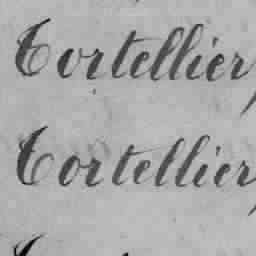 Tortellier,
Tortellier,